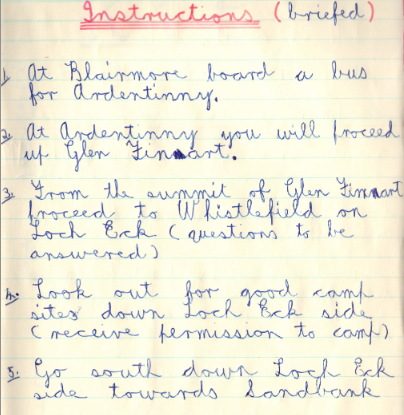 Instructions (briefed)
1. At Blairmore board a bus
for Ardentinny.
2. At Ardentinny you will proceed
up Glen Finnart.
3. From the summit of Glen Finnart
proceed to Whistlefield on
Loch Eck (questions to be
answered)
4. Look out for good camp
sites down Loch Eck side
(receive permission to camp)
5. Go south down Loch Eck
side towards Sandbank